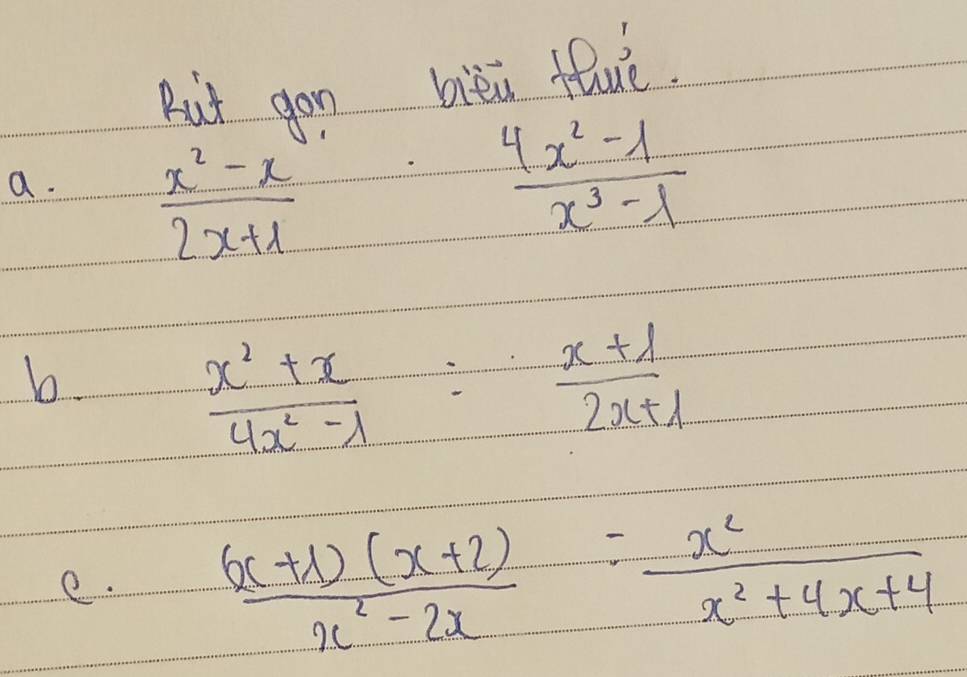 Rút gọn biểu thức.
a. \frac{x^2 - x}{2x+1} \cdot \frac{4x^2 - 1}{x^3 - 1}
b. \frac{x^2 + x}{4x^2 - 1} : \frac{x+1}{2x+1}
c. \frac{(x+1)(x+2)}{x^2 - 2x} : \frac{x^2}{x^2+4x+4}